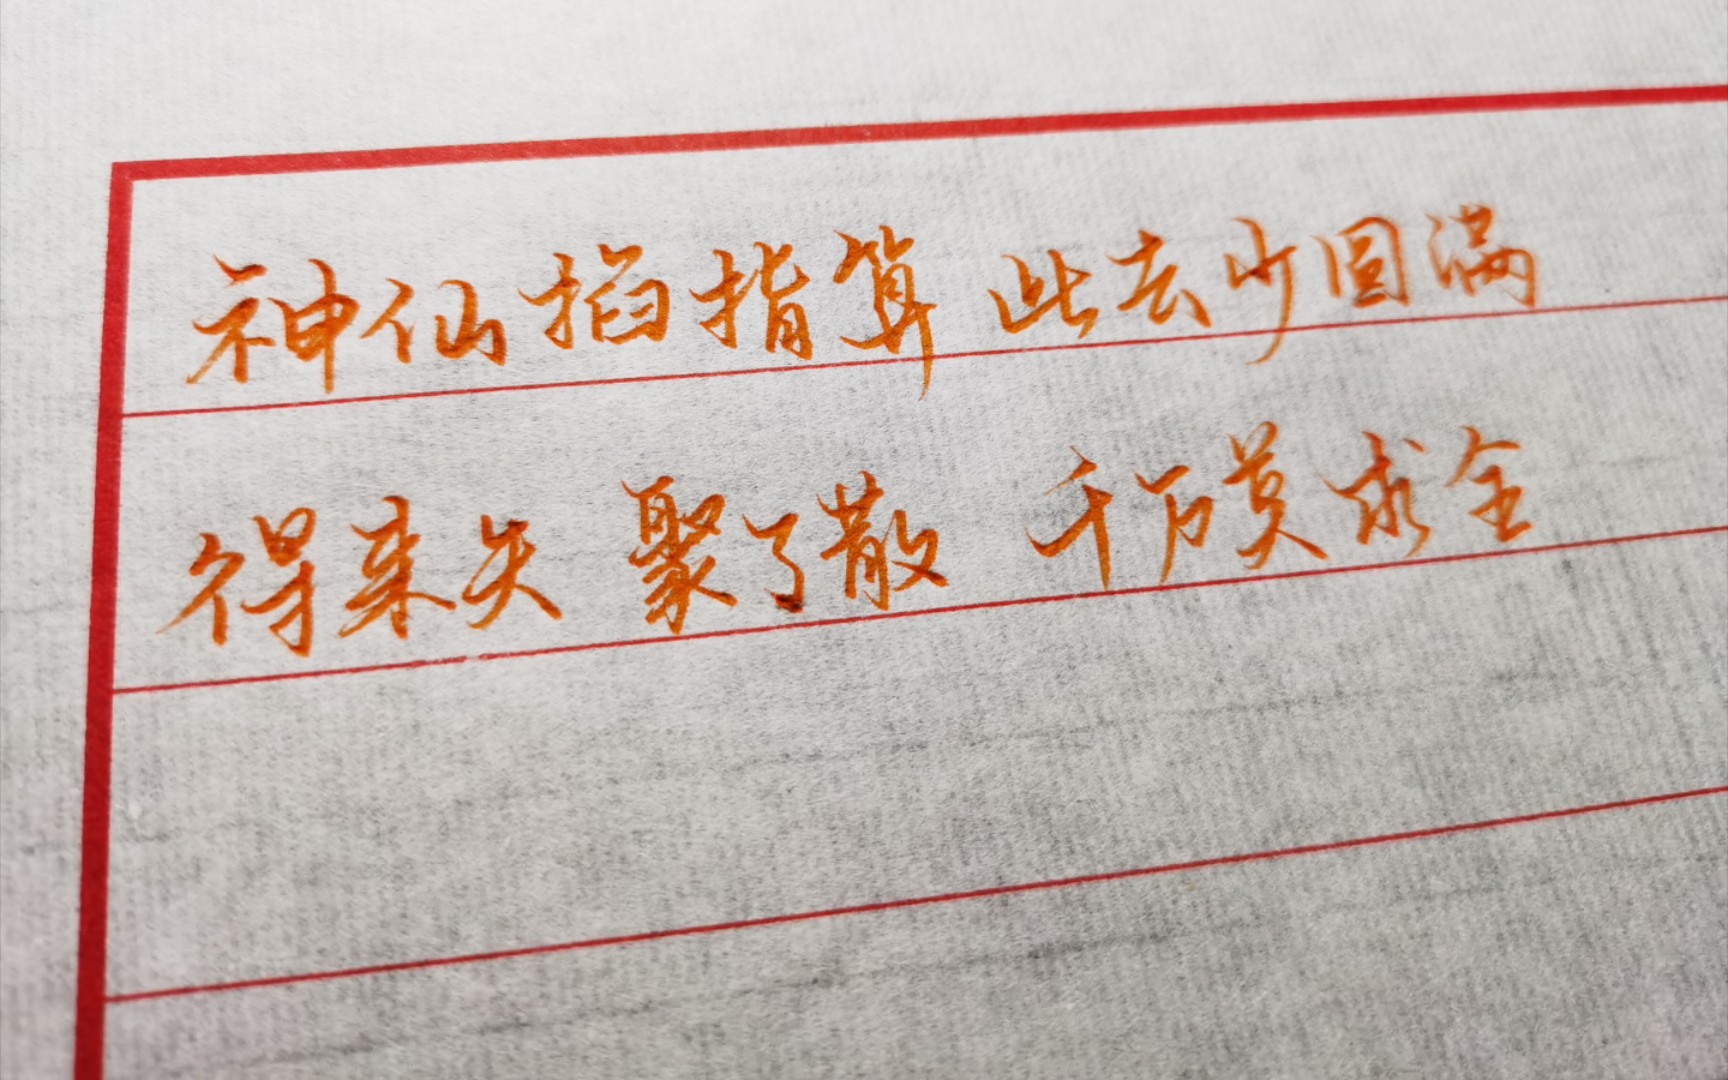 神仙掐指算 此去少圆满
得来失 聚了散 千万莫求全